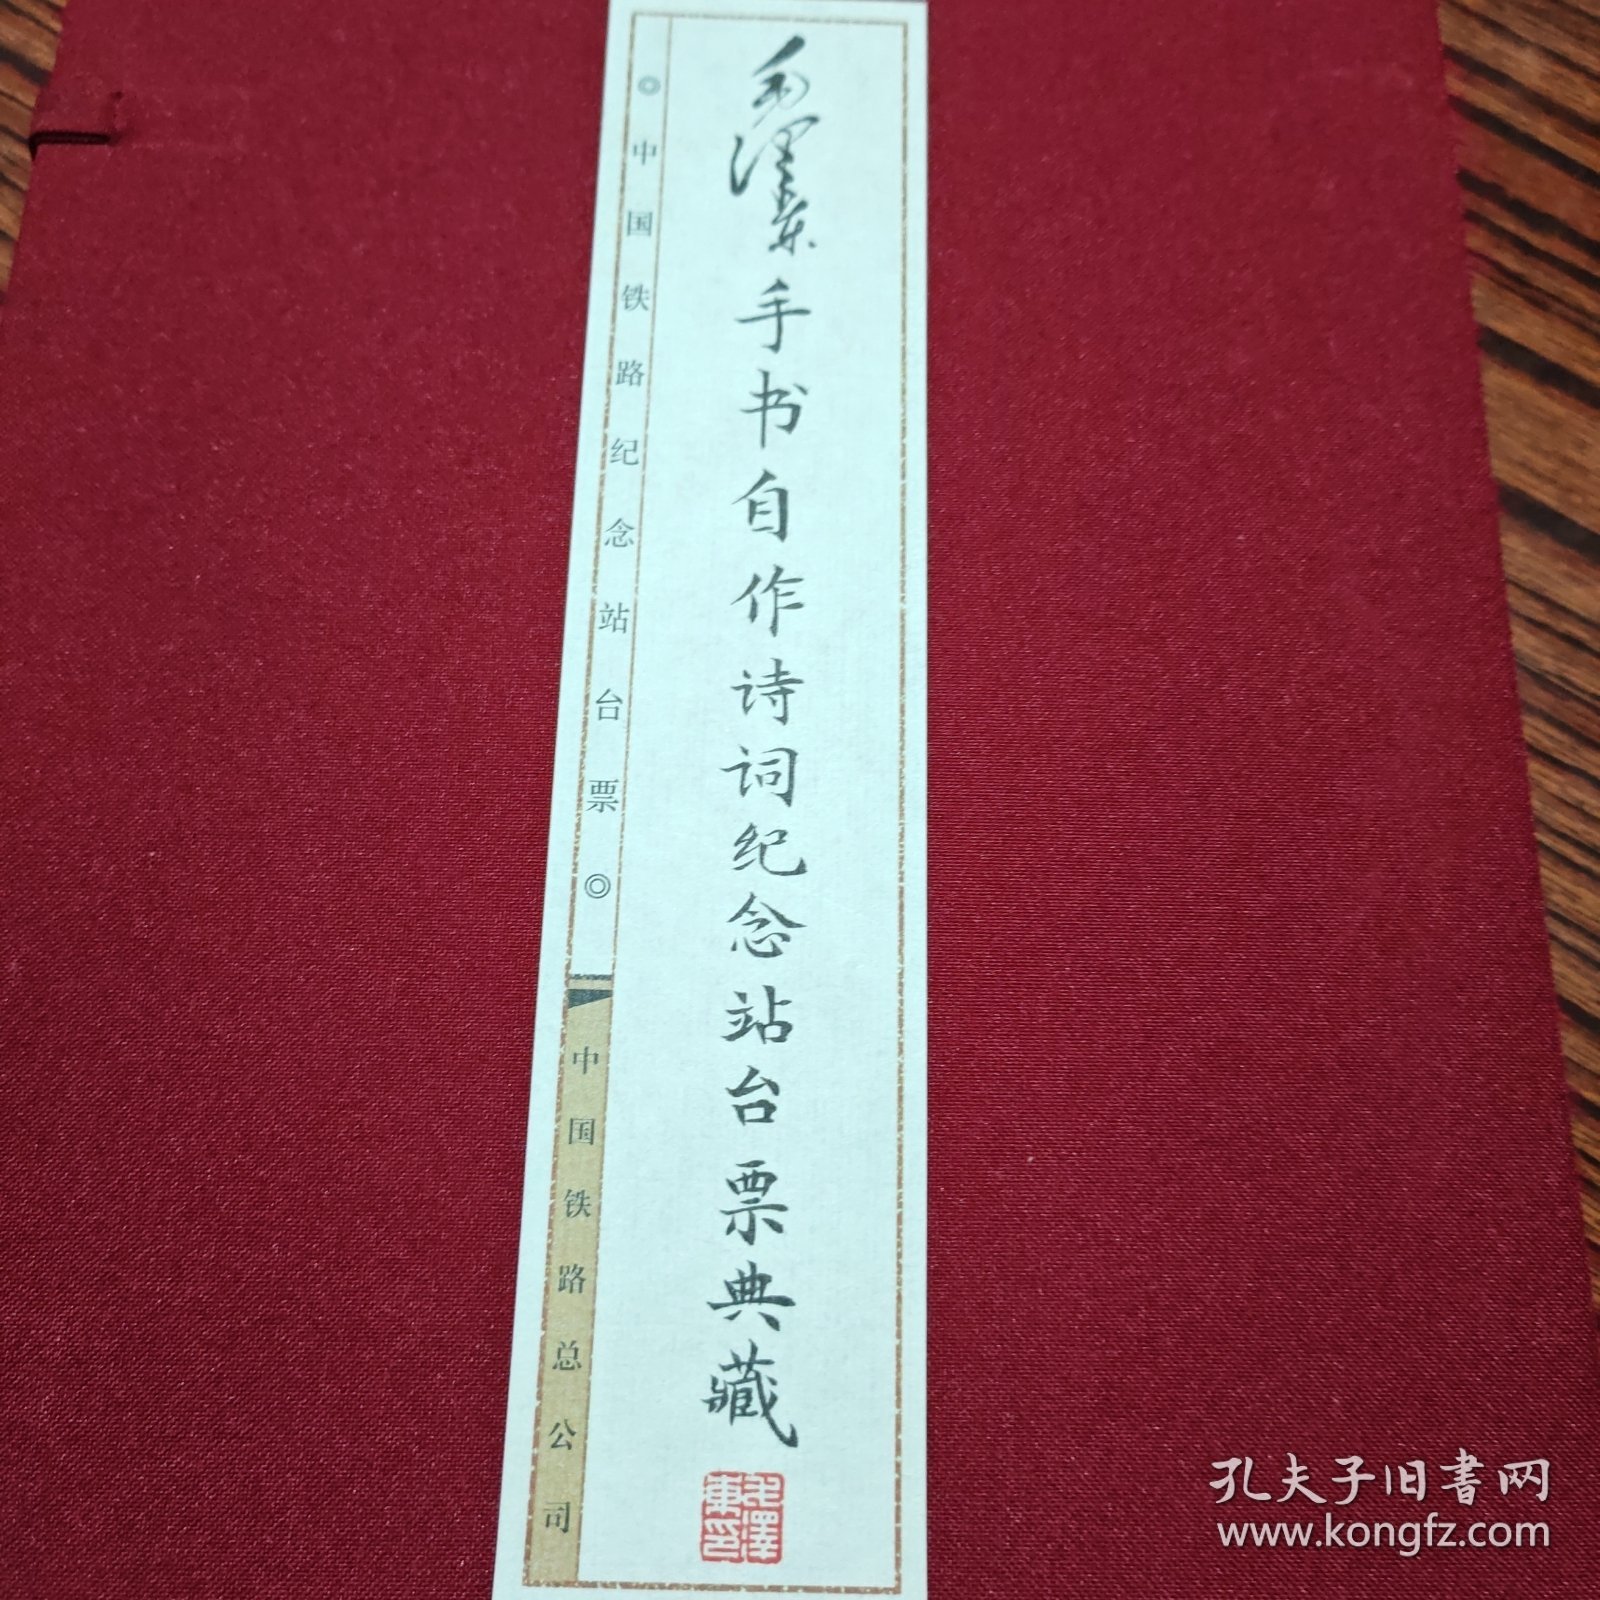 毛泽东手书自作诗词纪念站台票典藏
◎中国铁路纪念站台票◎
中国铁路总公司
毛澤東印
孔夫子旧書网
www.kongfz.com